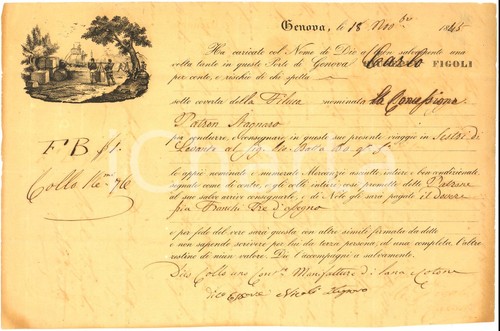 Genova, li 18 9bre 1845
Ha caricato col Nome di Dio a buon salvamento una
volta tanto in questo Porto di Genova Carlo FIGOLI
per conto, e rischio di chi spetta
sotto coverta della Filuca nominata La Concezione
Patron Stagnaro
per condurre, e consegnare in questo suo presente viaggio in Sestri di
Levante al Sig.
F B
Collo
le appiè nominate e numerate Mercanzie asciutte intiere e ben condizionate,
segnate come di contro, e gli volti intieri con promette detto Padrone
al suo salvo arrivo consegnarle, e di Nolo gli sarà pagato il dovere
più Franchi Tre d'assegno
e per fede del vero sarà questa con altre simili firmata da detto
e non sapendo scrivere per lui da terza persona, ed una complita, l'altre
restino di niun valore. Dio l'accompagni a salvamento.
Dico Collo uno Manifatture di lana e cotone
dico